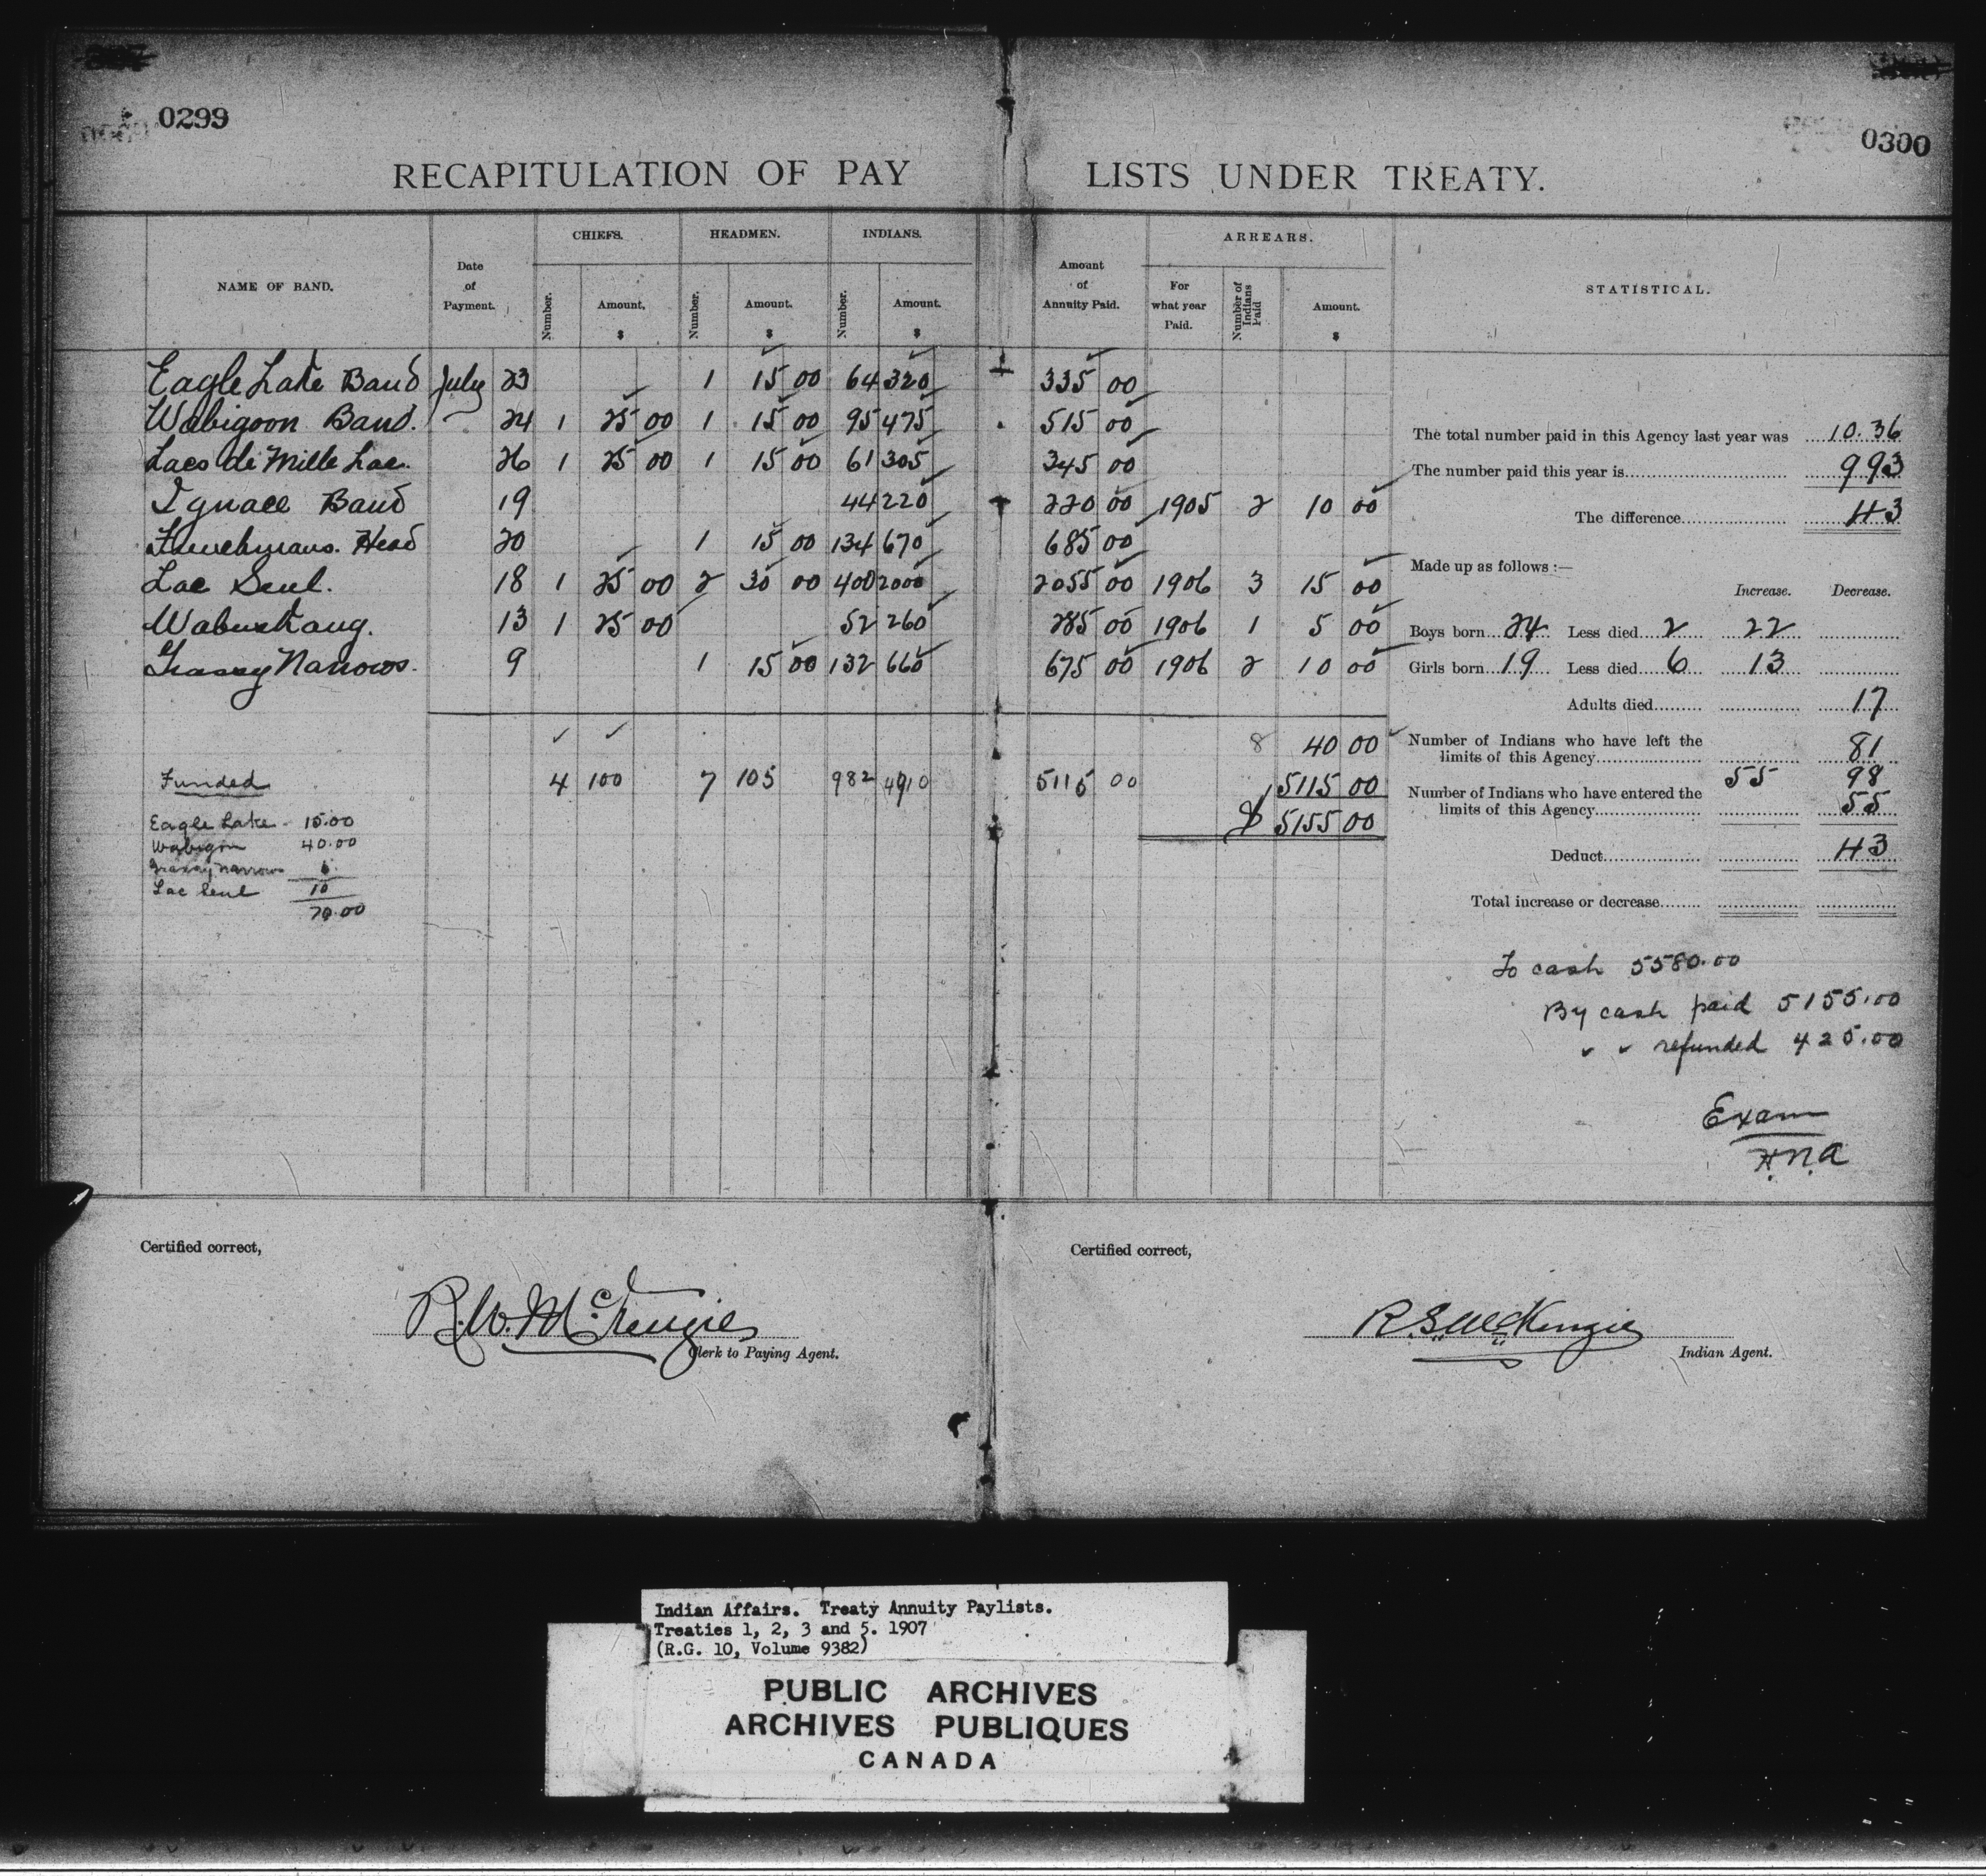 0299
0300
RECAPITULATION OF PAY LISTS UNDER TREATY.
NAME OF BAND. Date of Payment. CHIEFS. HEADMEN. INDIANS. Amount of Annuity Paid. ARREARS. STATISTICAL.
Number. Amount. $ Number. Amount. $ Number. Amount. $ For what year Paid. Number of Indians Paid Amount. $
Eagle Lake Band July 23 1 15 00 64 320 335 00
Wabigoon Band. 24 1 25 00 1 15 00 95 475 515 00
Lacs de Mille Lac. 26 1 25 00 1 15 00 61 305 345 00
Ignace Band 19 44 220 220 00 1905 2 10 00
Frenchmans. Head 20 1 15 00 134 670 685 00
Lac Seul. 18 1 25 00 2 30 00 400 2000 2055 00 1906 3 15 00
Wabuskang. 13 1 25 00 52 260 285 00 1906 1 5 00
Grassy Narrows. 9 1 15 00 132 660 675 00 1906 2 10 00
8 40 00
4 100 7 105 982 4910 5115 00 5115 00
$ 5155 00
Funded
Eagle Lake - 15.00
Wabigon 40.00
Grassy Narrows 5
Lac Seul 10
70.00
The total number paid in this Agency last year was 10.36
The number paid this year is 993
The difference 43
Made up as follows :—
Increase. Decrease.
Boys born 24 Less died 2 22
Girls born 19 Less died 6 13
Adults died 17
Number of Indians who have left the
limits of this Agency 81
55 98
Number of Indians who have entered the
limits of this Agency 55
Deduct 43
Total increase or decrease
To cash 5580.00
By cash paid 5155.00
" " refunded 425.00
Exam
H.N.A
Certified correct,
R.W. McKenzie
Clerk to Paying Agent.
Certified correct,
R.S. McKenzie
Indian Agent.
Indian Affairs. Treaty Annuity Paylists.
Treaties 1, 2, 3 and 5. 1907
(R.G. 10, Volume 9382)
PUBLIC ARCHIVES
ARCHIVES PUBLIQUES
CANADA